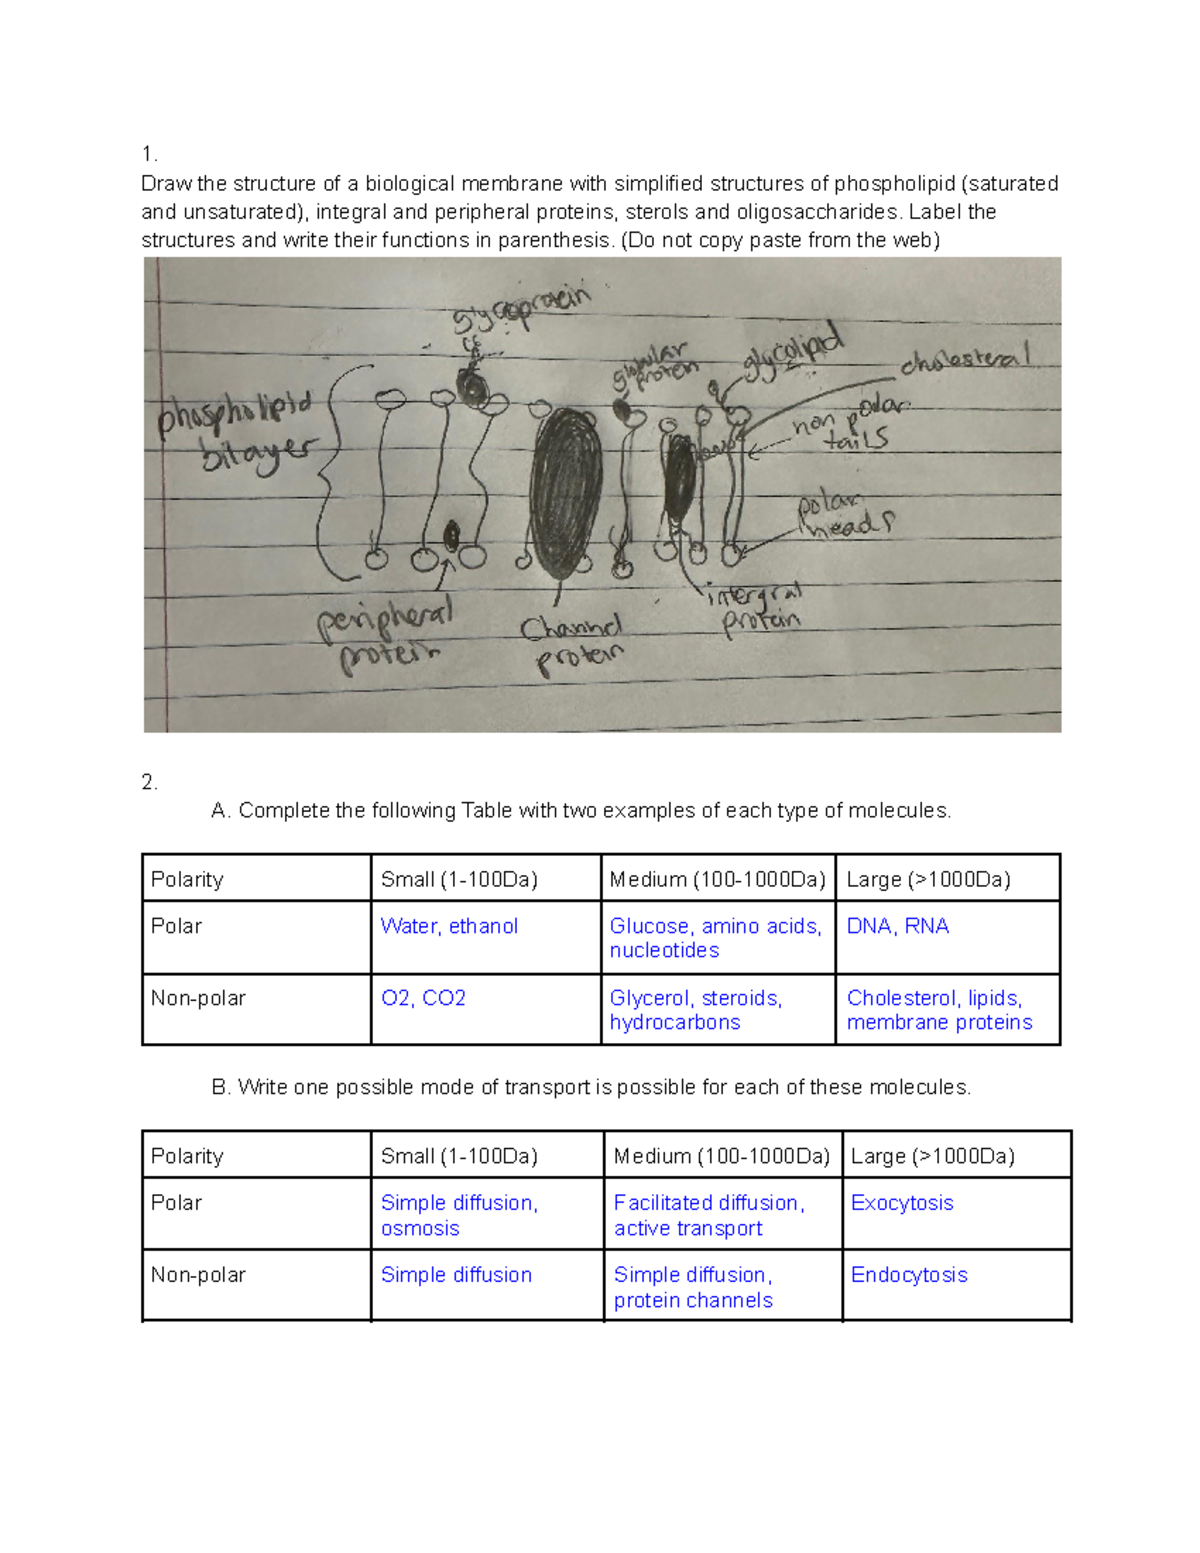 1.
Draw the structure of a biological membrane with simplified structures of phospholipid (saturated
and unsaturated), integral and peripheral proteins, sterols and oligosaccharides. Label the
structures and write their functions in parenthesis. (Do not copy paste from the web)
glycoprotein
globular
protein
glycolipid
cholesteral
phospholipid
bilayer
non polar
tails
polar
heads
peripheral
protein
Channel
protein
intergral
protein
2.
A. Complete the following Table with two examples of each type of molecules.
Polarity Small (1-100Da) Medium (100-1000Da) Large (>1000Da)
Polar Water, ethanol Glucose, amino acids, DNA, RNA
nucleotides
Non-polar O2, CO2 Glycerol, steroids, Cholesterol, lipids,
hydrocarbons membrane proteins
B. Write one possible mode of transport is possible for each of these molecules.
Polarity Small (1-100Da) Medium (100-1000Da) Large (>1000Da)
Polar Simple diffusion, Facilitated diffusion, Exocytosis
osmosis active transport
Non-polar Simple diffusion Simple diffusion, Endocytosis
protein channels